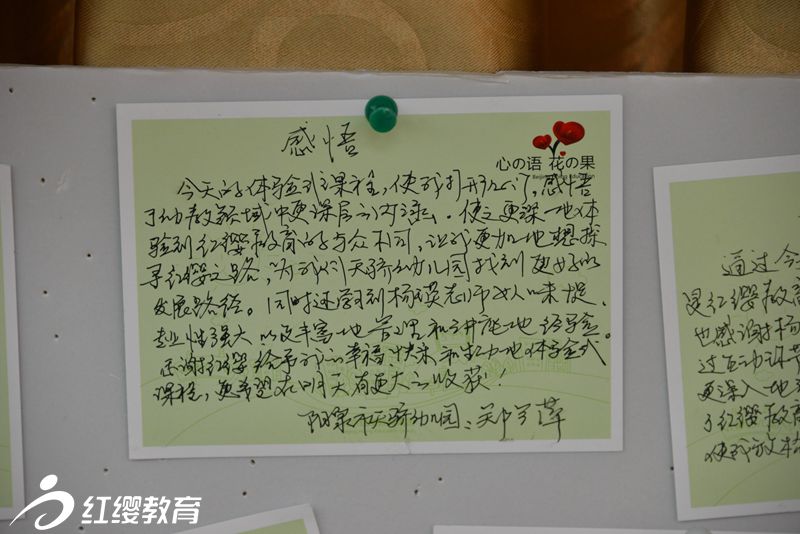 感悟
心の语 花の果
今天的体验式课程,使我打开心门,感悟
了幼教领域中更深层的内涵。使之更深一地体
验到红缨教育的与众不同,让我更加地想探
寻红缨之路,为我们天骄幼儿园找到更好的
发展路径。同时还学到杨瑛老师
专业性强大 以及丰富地 和 地经验。
感谢红缨给予我的幸福快乐和 地体验式
课程,更希望在明天有更大的收获!
阳泉市天骄幼儿园:郑 莲
通过今
灵红缨教育
也感谢杨
过互动环节
更深入地
了红缨教育
使我放
红缨教育